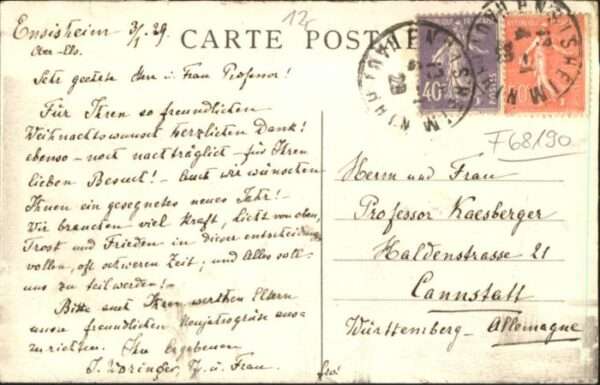 Ensisheim 3/1 29.
Ober-Els.
12c
CARTE POSTALE
ENSISHEIM
HAUT RHIN
29
40c
POSTES
F68190
Sehr geehrte Herr u. Frau Professor!
Für Ihren so freundlichen
Weihnachtswunsch herzlichen Dank!
ebenso – noch nachträglich – für Ihren
lieben Besuch! – Auch wir wünschen
Ihnen ein gesegnetes neues Jahr! –
Wir brauchen viel Kraft, Licht von oben,
Trost und Frieden in dieser entscheidungs
vollen, oft schweren Zeit; und Alles soll
uns zu teil werden! –
Bitte auch Ihren werthen Eltern
unsre freundlichen Neujahrsgrüsse
zurichten. Ihr Ergebenen
u. Frau.
Herrn und Frau
Professor Kaesberger
Haldenstrasse 21
Cannstatt
Württemberg – Allemagne